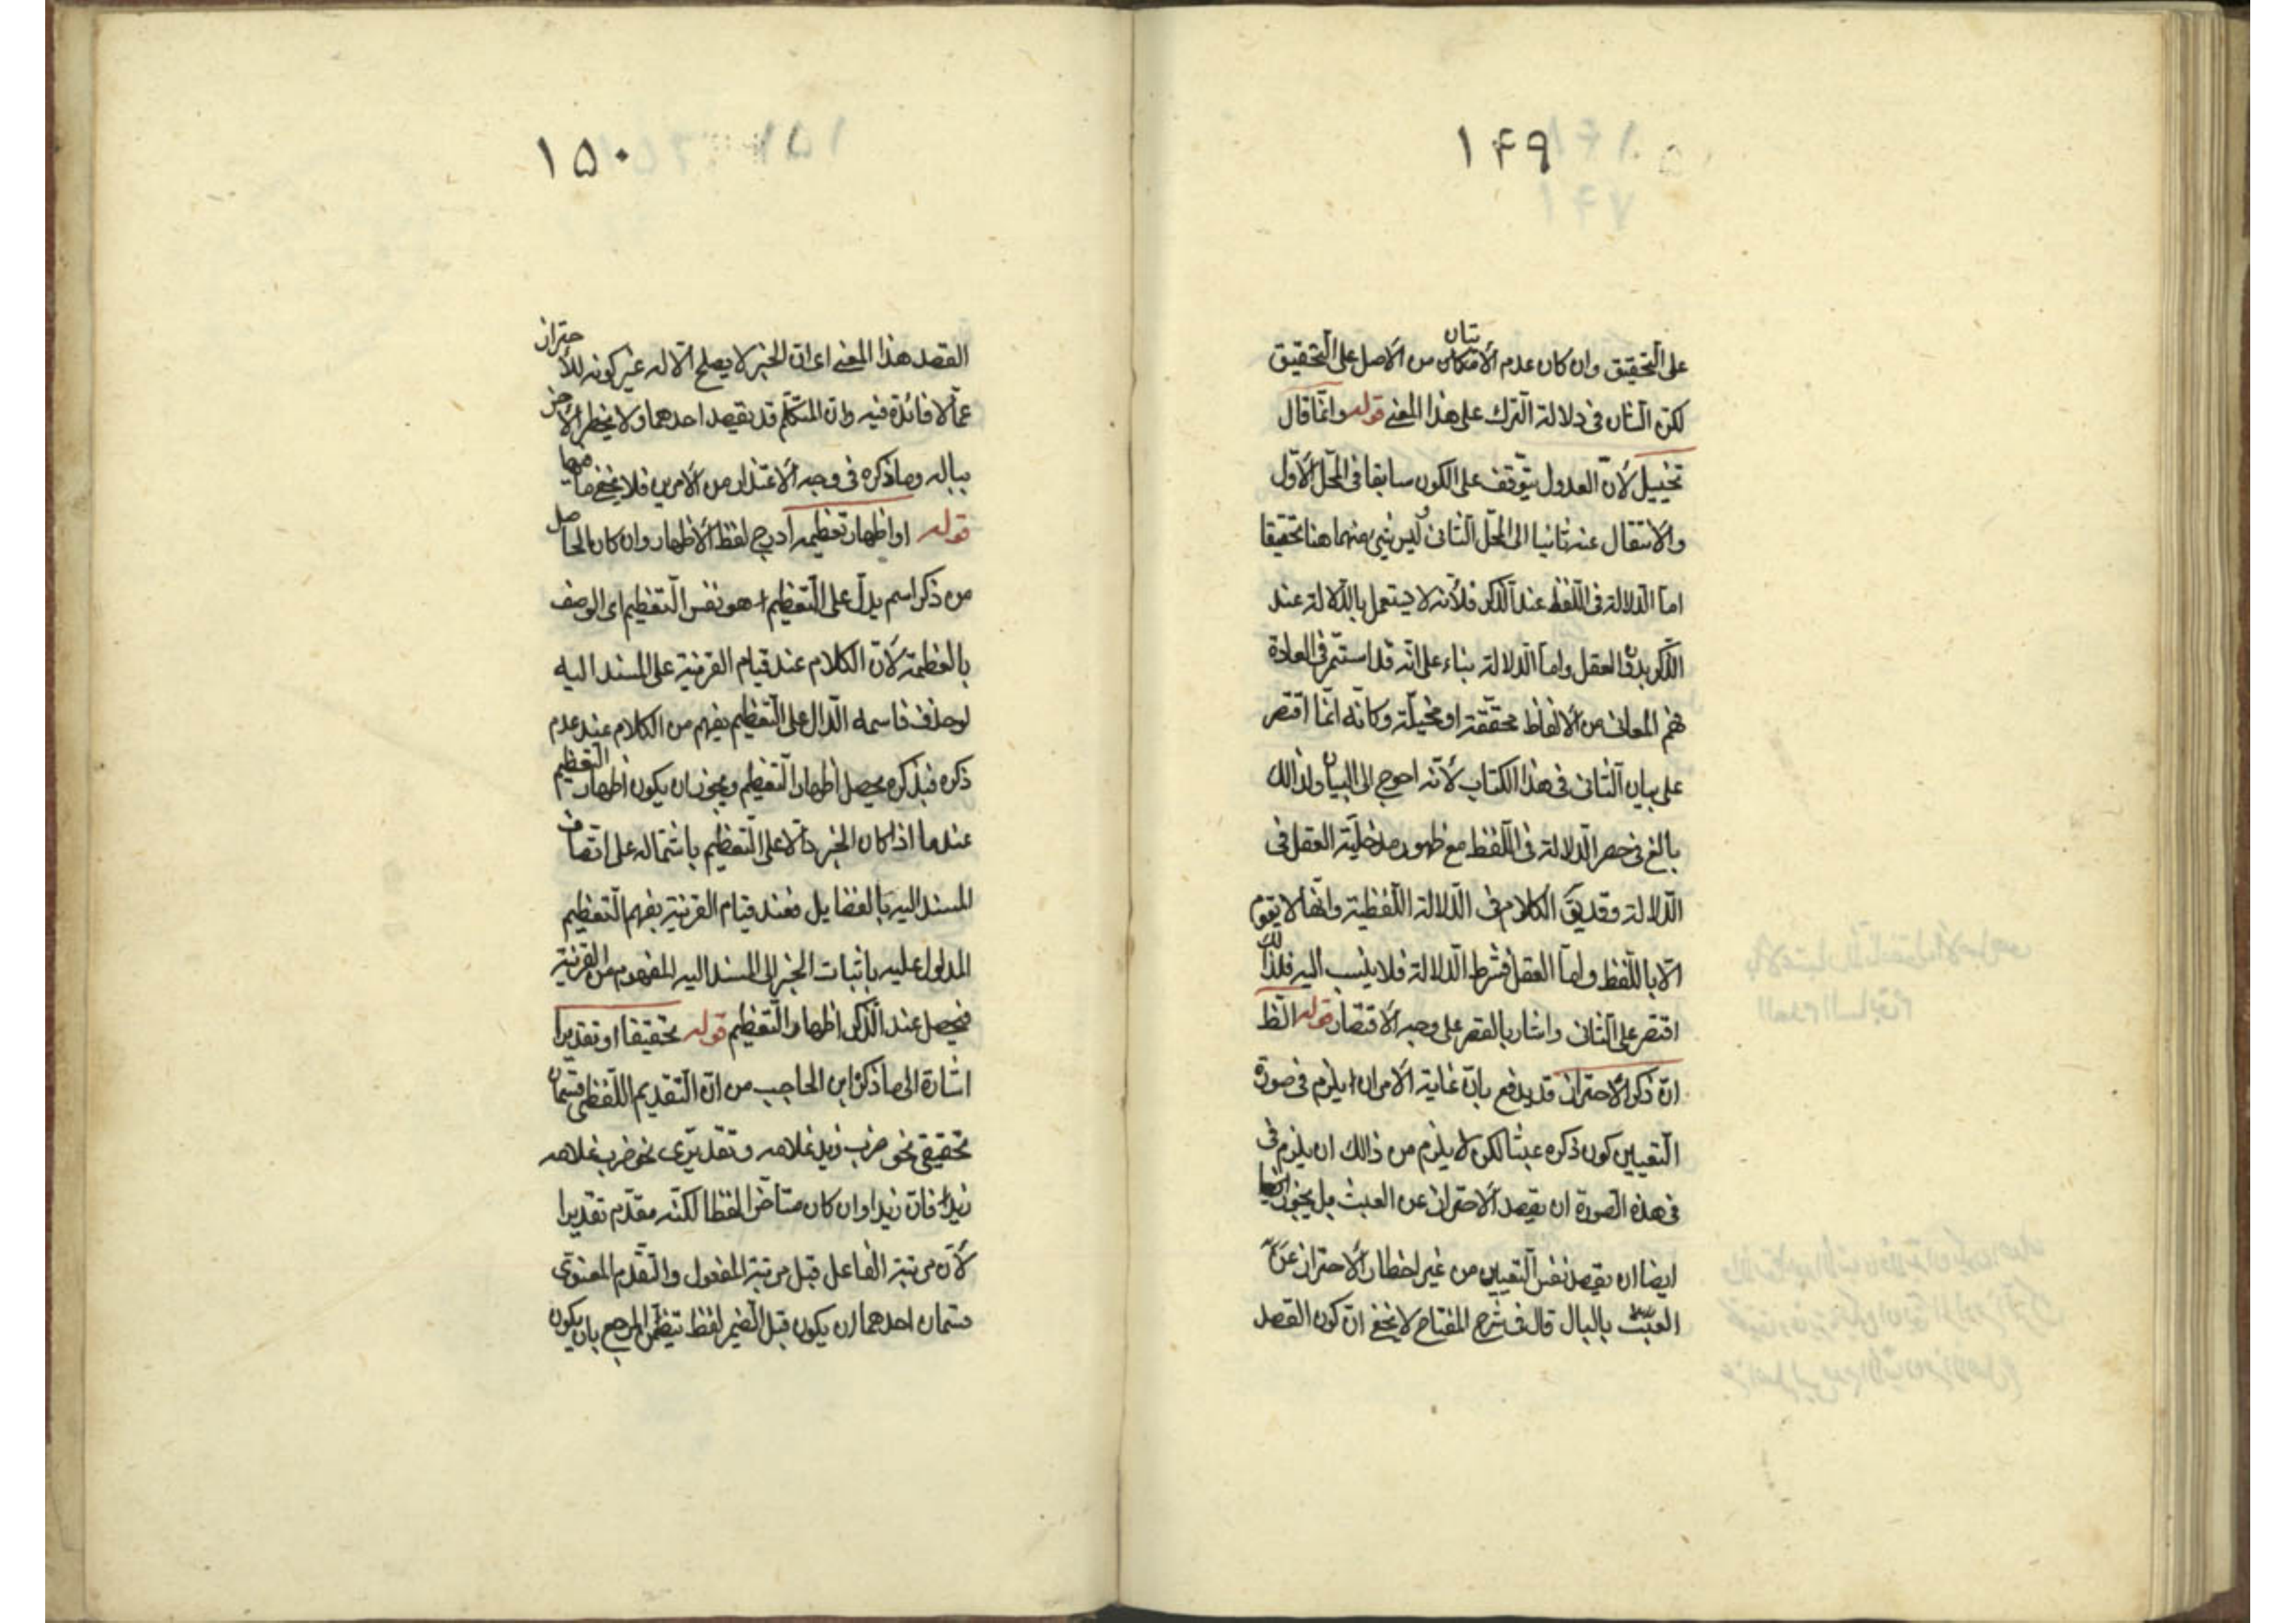 ۱۴۹
على التّحقيق وان كان عدم الأتيان من الأصل على التّحقيق
لكنّ الشان فى دلالة التّرك على هذا المعنى قوله وانّما قال
تخييل لأنّ العدول يتوقّف على الكون سابقا فى المحلّ الأوّل
والأنتقال عنه ثانيا الى المحلّ الثّانى وليس شئ منهما هنا تحقيقا
امّا الدّلالة فى اللّفظ عند الذّكر فلأنّه لا يستعمل بالدّلالة عند
الذّكر بدون العقل وامّا الدّلالة بناء على انّه قد استمرّ فى العادة
فهم المعانى من الألفاظ محقّقة او مخيلّة وكانّه انّما اقتصر
على بيان الثّانى فى هذا الكتاب لأنّه احوج الى البيان ولذالك
بالغ فى حصر الدّلالة فى اللّفظ مع ظهور مدخليّة العقل فى
الدّلالة وقد يقّ الكلام فى الدّلالة اللّفظية وانّها لا يقوم
الّا باللّفظ وامّا العقل فشرط الدّلالة فلا ينسب اليه فلذالك
اقتصر على الثّانى واشار بالقصر على وجه الأقتصار قوله الظ
انّ ذكر الأحتراز قد يدفع بانّ غاية الأمر ان يلزم فى صورة
التّعيين كون ذكره عبثا لكن لا يلزم من ذالك ان يلزم فى
فى هذه الصّورة ان يقصد الأحتراز عن العبث بل يجوز
ايضا ان يقصد نفس التّعيين من غير اخطار الأحتراز عن
العبث بالبال قال فى شرح المفتاح لا يخفى انّ كون القصد
۱۵۰
القصد هذا المعنى اى انّ الخبر لا يصلح الّا له غير كونه للأحتراز
عمّا لا فائدة فيه وانّ المتكلّم قد يقصد احدهما ولا يخطر الأخر
بباله وما ذكره فى وجه الأعتذار من الأمرين فلا يخفى ما فيهما
قوله او اظهار تعظيمه ادرج لفظ الأظهار وان كان الحاصل
من ذكر اسم يدلّ على التّعظيم هو نفس التّعظيم اى الوصف
بالعظمة لأنّ الكلام عند قيام القرنية على المسند اليه
لو حذف فاسمه الدّال على التّعظيم يفهم من الكلام عند عدم
ذكره فبذكره يحصل اظهار التّعظيم ويجوز ان يكون اظهار التّعظيم
عند ما اذا كان الخبر دالّا على التّعظيم باشتماله على اتّصاف
المسند اليه بالفضايل فعند قيام القرنية يفهم التّعظيم
المدلول عليه باثبات الخبر الى المسند اليه المفهوم من القرنية
فيحصل عند الذّكر اظهار التّعظيم قوله تحقيقا او تقديرا
اشارة الى ما ذكر ابن الحاجب من انّ التّقديم اللّفظى قسمان
تحقيقى نحو ضرب زيد غلامه وتقديرّى نحو ضرب غلامه
زيدا فانّ زيدا وان كان متأخرا لفظا لكنّه مقدّم تقديرا
لأنّ مرتبة الفاعل قبل مرتبة المفعول والتّقدّم المعنوّى
قسمان احدهما ان يكون قبل الضّمير لفظ يتضمّن المرجع بان يكون